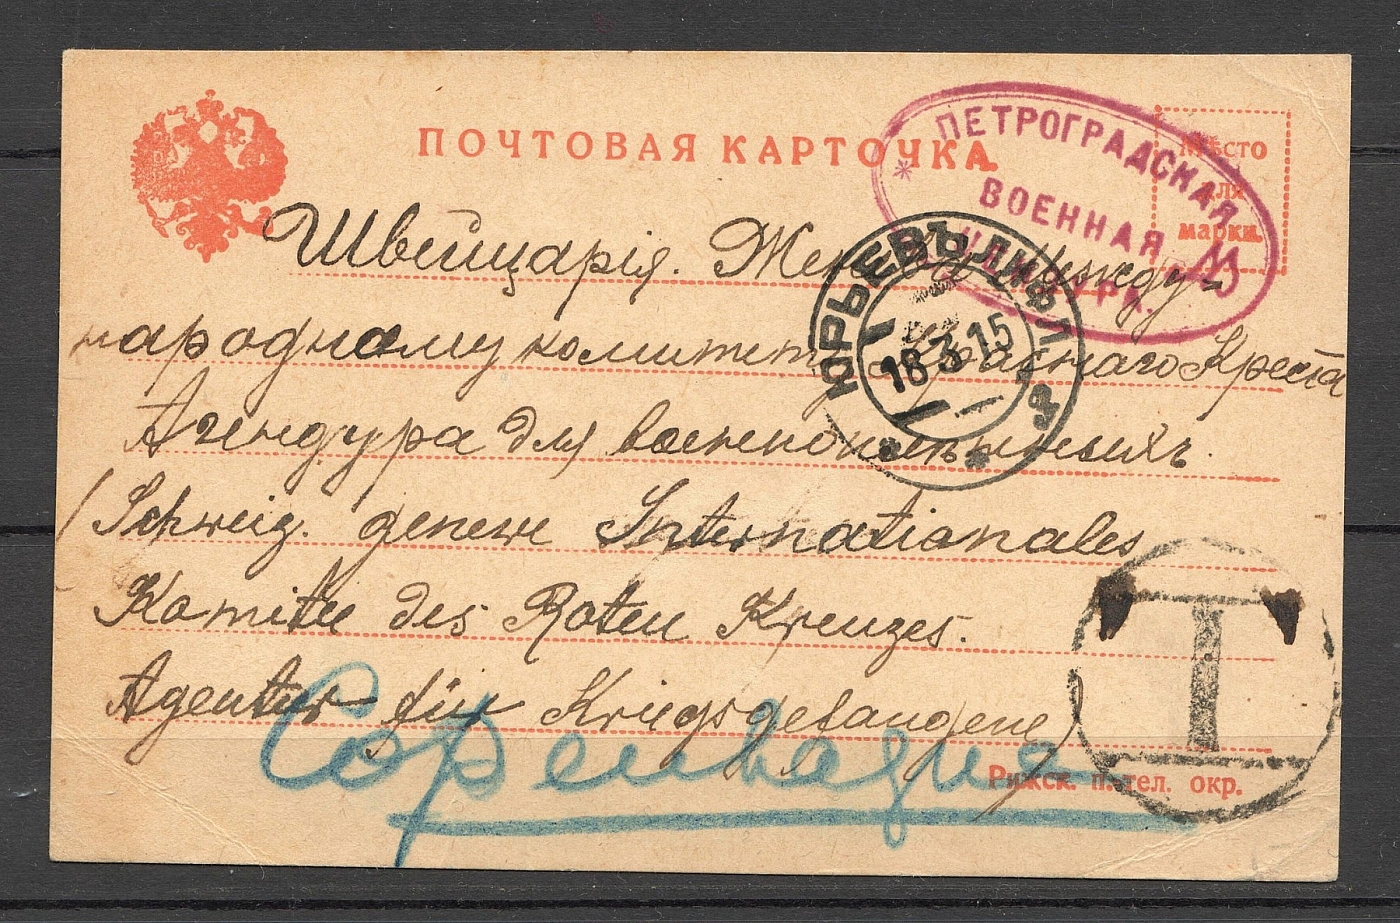 ПОЧТОВАЯ КАРТОЧКА.
Мѣсто
для
марки.
ПЕТРОГРАДСКАЯ
ВОЕННАЯ
ЦЕНЗУРА.
Швейцарія. Женева Между-
народному комитету Краснаго Креста
ЮРЬЕВЪ ЛИФЛ.
18 3 15
Агендура для военноплѣнныхъ.
(Schweiz. geneve Internationales
Komitee des Roten Kreuzes.
Agentur für Kriegsgefangene)
T
Copenhague
Рижск. п. тел. окр.